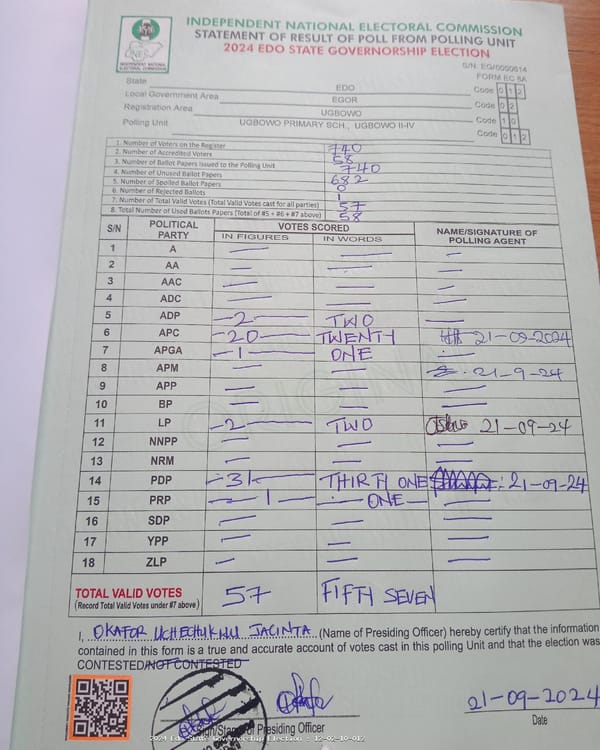 INDEPENDENT NATIONAL ELECTORAL COMMISSION
STATEMENT OF RESULT OF POLL FROM POLLING UNIT
2024 EDO STATE GOVERNORSHIP ELECTION
INDEPENDENT NATIONAL ELECTORAL COMMISSION
S/N: EG/0000614
FORM EC 8A
State EDO Code 0 1 2
Local Government Area EGOR Code 0 2
Registration Area UGBOWO Code 1 0
Polling Unit UGBOWO PRIMARY SCH., UGBOWO II-IV Code 0 1 2
1. Number of Voters on the Register 740
2. Number of Accredited Voters 58
3. Number of Ballot Papers Issued to the Polling Unit 740
4. Number of Unused Ballot Papers 682
5. Number of Spoiled Ballot Papers 0
6. Number of Rejected Ballots 1
7. Number of Total Valid Votes (Total Valid Votes cast for all parties) 57
8. Total Number of Used Ballots Papers (Total of #5 + #6 + #7 above) 58
S/N POLITICAL PARTY VOTES SCORED NAME/SIGNATURE OF POLLING AGENT
IN FIGURES IN WORDS
1 A — — —
2 AA — — —
3 AAC — — —
4 ADC — — —
5 ADP -2- TWO —
6 APC -20- TWENTY 21-09-2024
7 APGA -1- ONE —
8 APM — — 21-9-24
9 APP — — —
10 BP — — —
11 LP -2- TWO 21-09-24
12 NNPP — — —
13 NRM — — —
14 PDP -31- THIRTH ONE 21-09-24
15 PRP -1- -ONE- —
16 SDP — — —
17 YPP — — —
18 ZLP — — —
TOTAL VALID VOTES 57 FIFTY SEVEN
(Record Total Valid Votes under #7 above)
I, OKAFOR UCHECHUKWU JACINTA (Name of Presiding Officer) hereby certify that the information
contained in this form is a true and accurate account of votes cast in this polling Unit and that the election was
CONTESTED/NOT CONTESTED
Sign/Stamp of Presiding Officer
21-09-2024
Date
2024 Edo State Governorship Election - 12-02-10-012